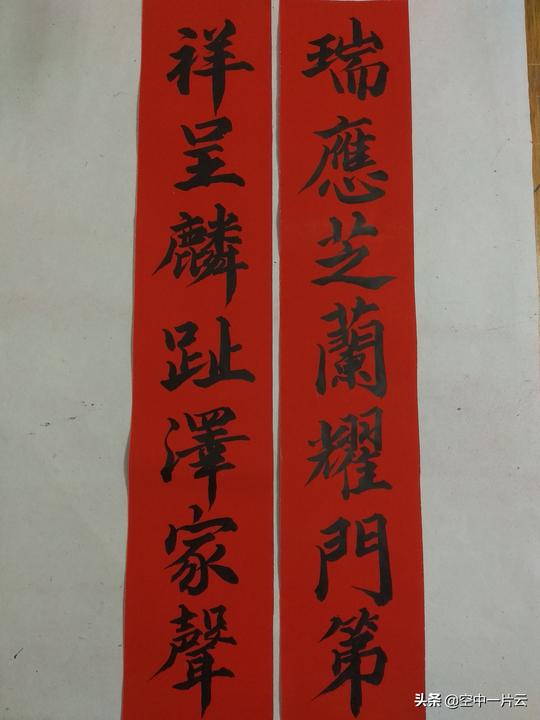 瑞應芝蘭耀門第
祥呈麟趾澤家聲
头条 @空中一片云